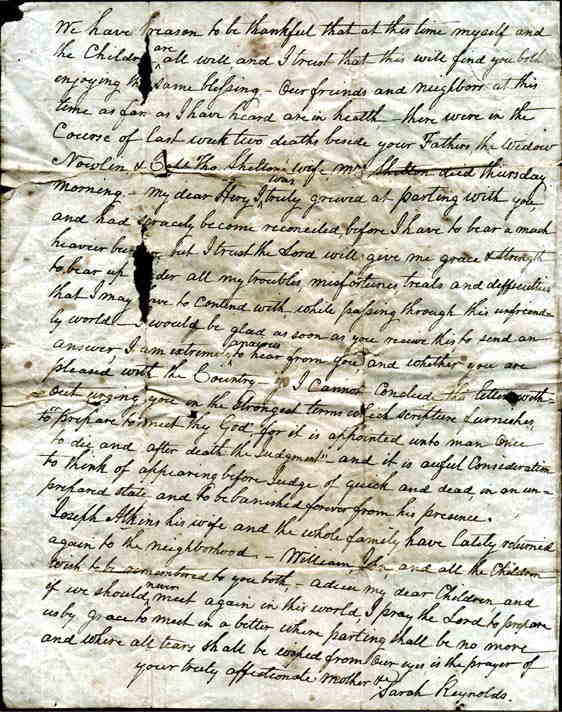 We have reason to be thankful that at this time myself and
the Children are all will and I trust that this will find you both
enjoying the same blessing - Our friends and neighbors at this
time as far as I have heard are in health - there were in the
Course of last week two deaths beside your Fathers, the Widow
Nowlin & Tho. Sheltons wife Mrs Shelton died thursday
morning. - my dear Hevy I was truly grieved at parting with you
and had scracely become reconciled, before I have to bear a much
heavier but I trust the Lord will give me grace & strength
to bear up under all my troubles, misfortunes treals and difficulties
that I may have to contend with while passing through this unfreend-
ly world - I would be glad as soon as you receive this to send an
answer, I am extremely anxious to hear from you and whether you are
pleased with the Country - I Cannot Conclude this letter with-
out urging you in the strongest terms which scripture furnishes,
to "prepare to meet thy God" for it is appointed unto man once
to die, and after death the Judgment" - and it is awful Consideration
to think of appearing before Judge of quick and dead, in an un-
prepared state and to be banished forever from his presence.
Joseph Atkins his wife and the whole family have lately returned
again to the neighborhood - William, Jno, and all the Children
wish to be remembored to you both, - adieu my dear Children and
if we should never meet again in this world, I pray the Lord to prepare
us by grace to meet in a better where parting shall be no more
and where all tears shall be wiped from our eyes is the prayer of
your truly affectionate mother &c
Sarah Reynolds.